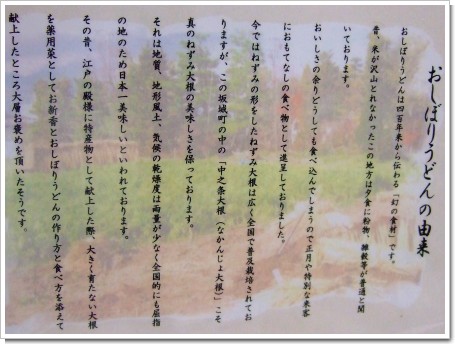 おしぼりうどんの由来
おしぼりうどんは四百年来から伝わる「幻の食材」です。
昔、米が沢山とれなかったこの地方は夕食に粉物、雑穀等が普通と聞
いております。
おいしさの余りどうしても食べ込んでしまうので正月や特別な来客
におもてなしの食べ物として進呈しておりました。
今ではねずみの形をしたねずみ大根は広く全国で普及栽培されてお
りますが、この坂城町の中の「中之条大根（なかんじょ大根）」こそ
真のねずみ大根の美味しさを保っております。
それは地質、地形風土、気候の乾燥度は雨量が少なく全国的にも屈指
の地のため日本一美味しいといわれております。
その昔、江戸の殿様に特産物として献上した際、大きく育たない大根
を薬用菜としてお新香とおしぼりうどんの作り方と食べ方を添えて
献上したところ大層お褒めを頂いたそうです。